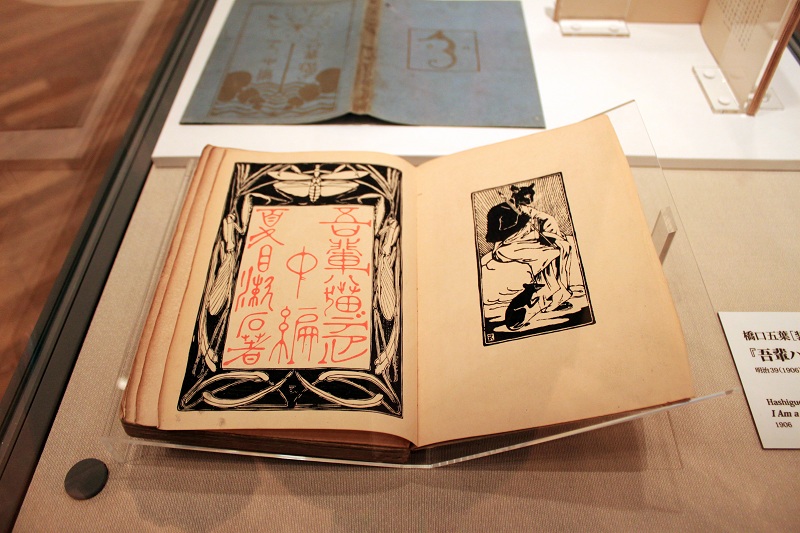 吾輩ハ猫デアル
中編
夏目漱石著
橋口五葉［装
『吾輩ハ
明治39(1906)
Hashigu
I Am a
1906